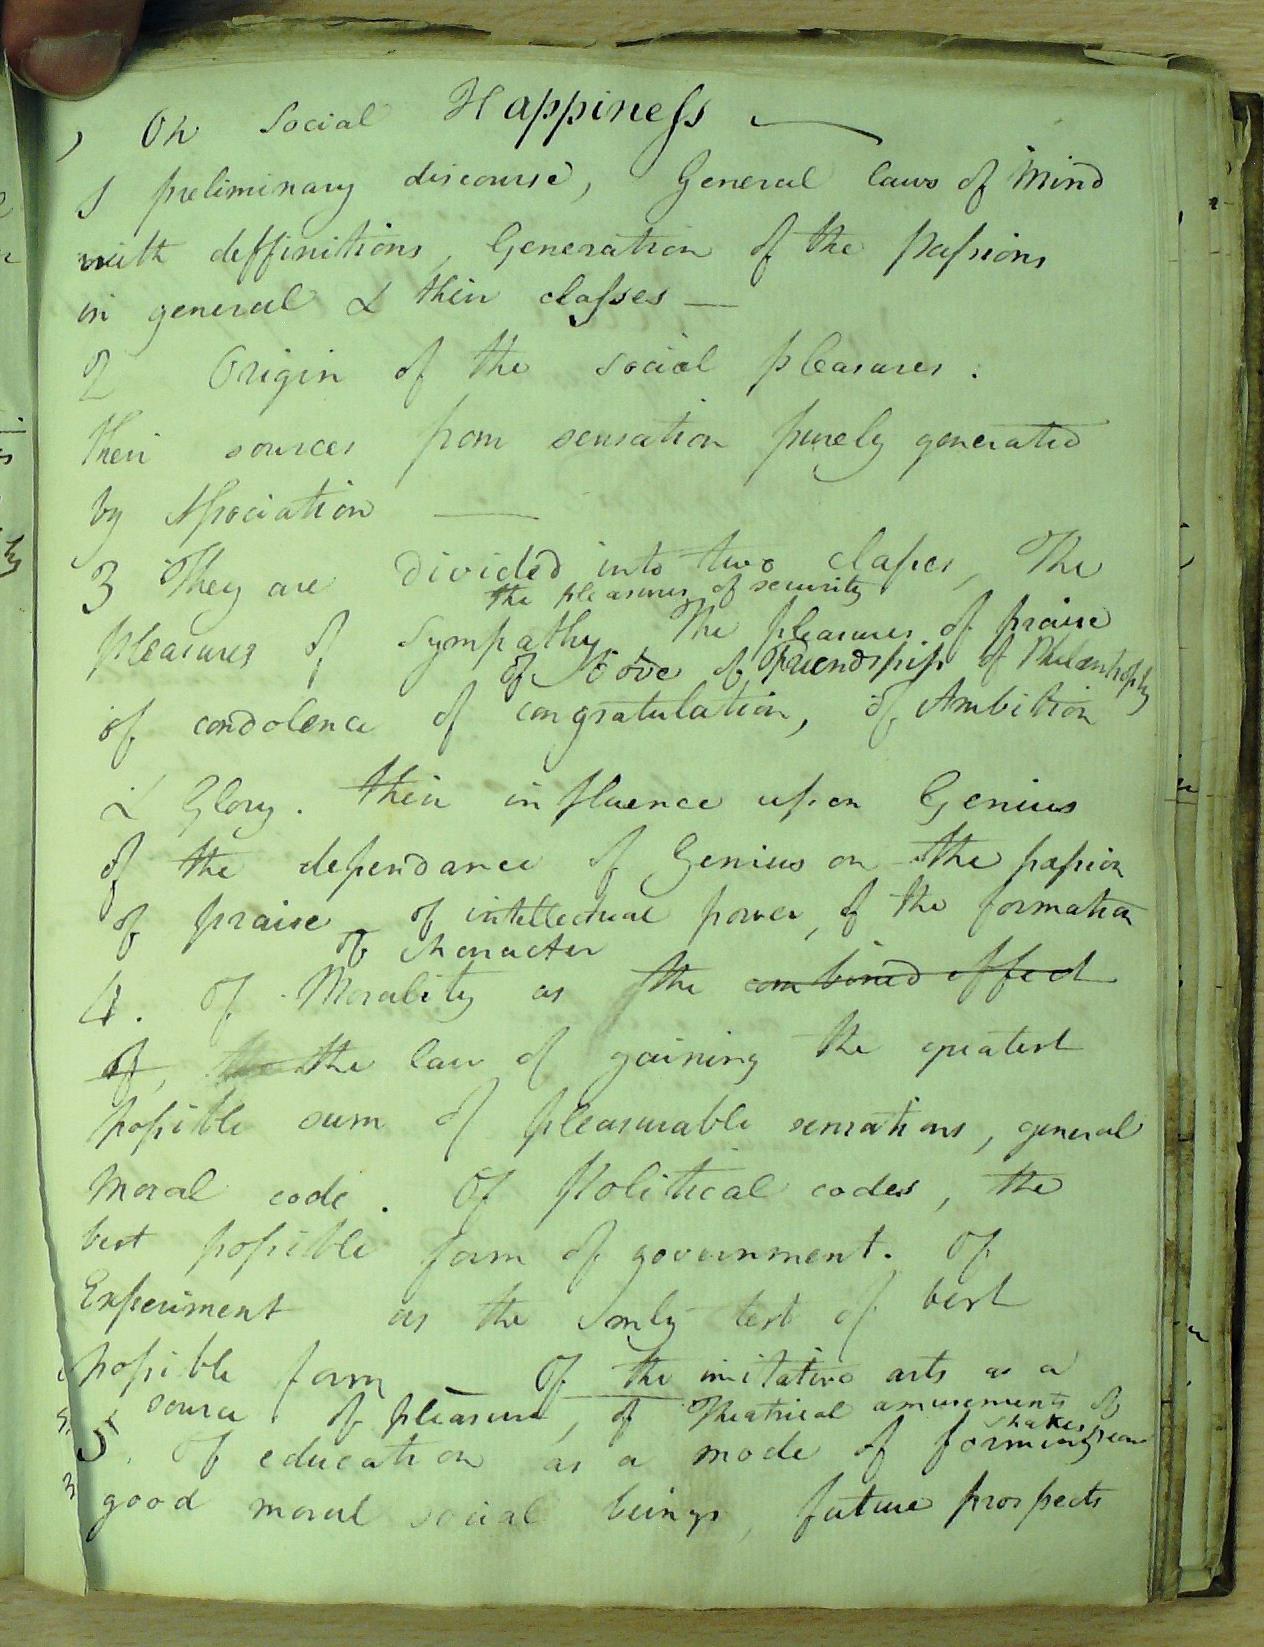 On Social Happiness —
1 preliminary discourse, General laws of Mind
with deffinitions, Generation of the Passions
in general & their classes —
2 Origin of the social pleasures.
their sources from sensation purely generated
by Association —
3 They are divided into two classes, The
the pleasures of security
pleasures of Sympathy, The pleasures of praise
of Love of Friendship of Philanthrophy
of condolence of congratulation, of Ambition
& Glory. their influence upon Genius
of the dependance of Genius on the passion
of praise of intellectual power, of the formation
of character
4. Of Morality as the combined effect
of, the the law of gaining the greatest
possible sum of pleasurable sensations, general
Moral code. Of Political codes, the
best possible form of government. Of
Experiment as the only test of best
possible form — Of the imitative arts as a
source of pleasure, of Theatrical amusements of
Shakespear
5. Of education as a mode of forming
good moral social beings, future prospects